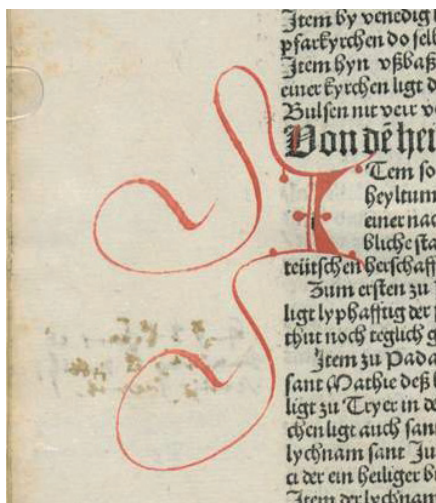 Item by venedig l
pfarkyrchen do selb
Item hyn vßbaß
einer kyrchen ligt d
Bulsen nit veir v
Von dē hei
ITem so
heyltum
einer nac
bliche sta
teütschen herschaff
Zum ersten zu
ligt lyphafftig der
thut noch teglich g
Item zu Pada
sant Mathie deß
ligt zu Tryer in de
chen ligt auch san
lychnam sant Ju
ci der ein heiliger b
Item der lychnam